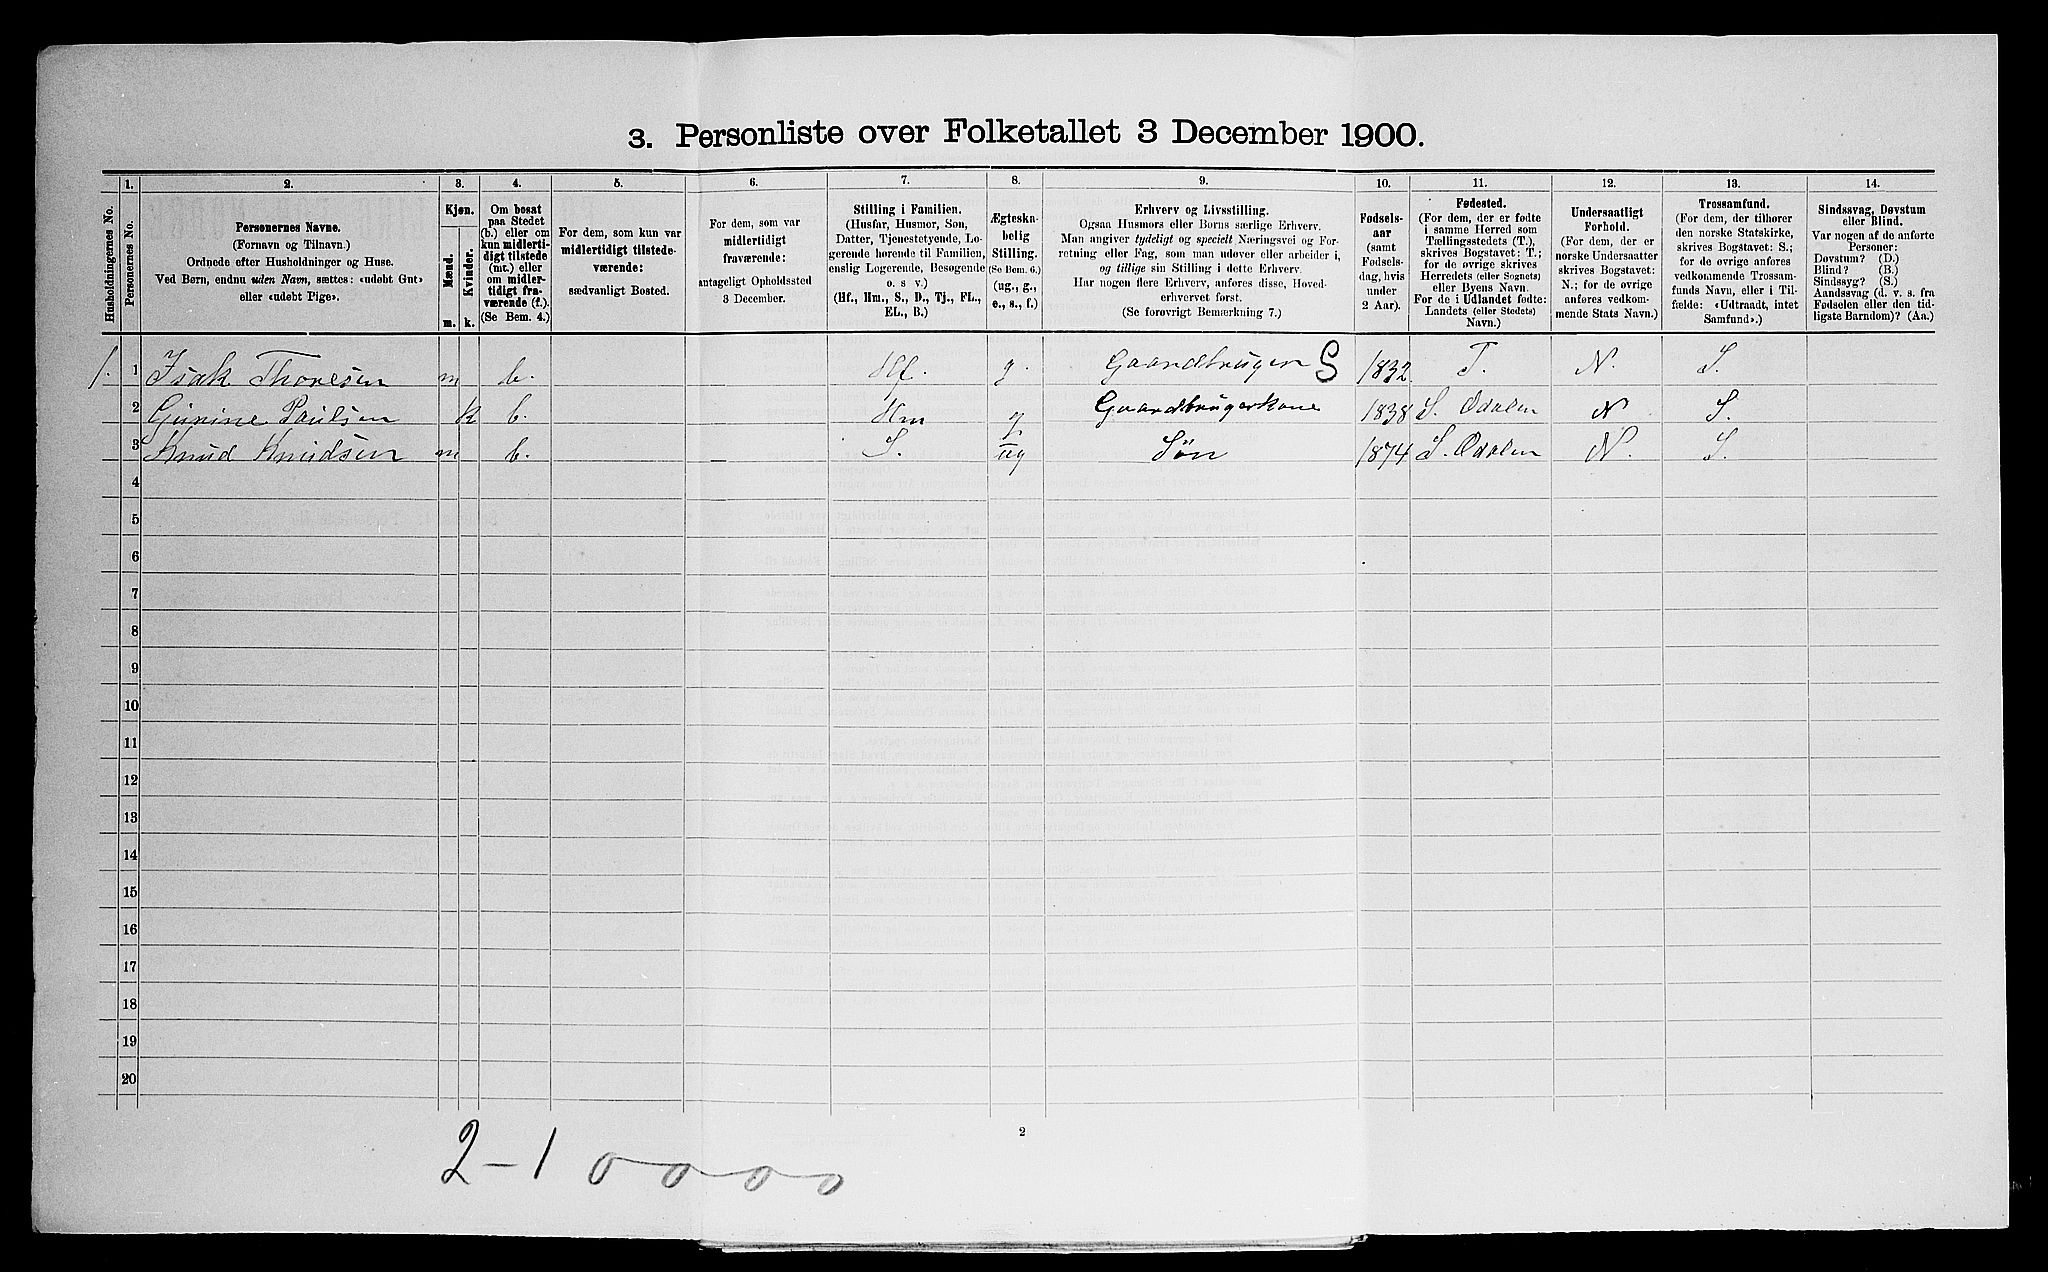 3. Personliste over Folketallet 3 December 1900.
1. 2. 3. 4. 5. 6. 7. 8. 9. 10. 11. 12. 13. 14.
Husholdningernes No.
Personernes No.
Personernes Navne.
(Fornavn og Tilnavn.)
Ordnede efter Husholdninger og Huse.
Ved Børn, endnu uden Navn, sættes: «udøbt Gut»
eller «udøbt Pige».
Kjøn.
Mænd.
Kvinder.
m. k.
Om bosat
paa Stedet
(b.) eller om
kun midlerti-
digt tilstede
(mt.) eller
om midler-
tidigt fra-
værende (f.).
(Se Bem. 4.)
For dem, som kun var
midlertidigt tilstede-
værende:
sædvanligt Bosted.
For dem, som var
midlertidigt
fraværende:
antageligt Opholdssted
3 December.
Stilling i Familien.
(Husfar, Husmor, Søn,
Datter, Tjenestetyende, Lo-
gerende hørende til Familien,
enslig Logerende, Besøgende
o. s v.)
(Hf., Hm., S., D., Tj., FL.,
EL., B.)
Ægteska-
belig
Stilling.
(Se Bem. 6.)
(ug., g.,
e., s., f.)
Erhverv og Livsstilling.
Ogsaa Husmors eller Børns særlige Erhverv.
Man angiver tydeligt og specielt Næringsvei og For-
retning eller Fag, som man udøver eller arbeider i,
og tillige sin Stilling i dette Erhverv.
Har nogen flere Erhverv, anføres disse, Hoved-
erhvervet først.
(Se forøvrigt Bemærkning 7.)
Fødsels-
aar
(samt
Fødsels-
dag, hvis
under
2 Aar).
Fødested.
(For dem, der er fødte
i samme Herred som
Tællingsstedets (T.),
skrives Bogstavet: T.;
for de øvrige skrives
Herredets (eller Sognets)
eller Byens Navn.
For de i Udlandet fødte:
Landets (eller Stedets)
Navn.)
Undersaatligt
Forhold.
(For dem, der er
norske Undersaatter
skrives Bogstavet:
N.; for de øvrige
anføres vedkom-
mende Stats Navn.)
Trossamfund.
(For dem, der tilhører
den norske Statskirke,
skrives Bogstavet: S.;
for de øvrige anføres
vedkommende Trossam-
funds Navn, eller i Til-
fælde: «Udtraadt, intet
Samfund».)
Sindssvag, Døvstum
eller Blind.
Var nogen af de anførte
Personer:
Døvstum? (D.)
Blind? (B.)
Sindssyg? (S.)
Aandssvag (d. v. s. fra
Fødselen eller den tid-
ligste Barndom)? (Aa.)
1. 1 Isak Thoresen m b. Hf. g. Gaardbruger S 1832 T. N. S.
2 Gunine Paulsen k b. Hm g Gaardbrugerkone 1838 S. Odalen N S.
3 Knud Knudsen m b. S. ug Søn 1874 S. Odalen N. S.
4
5
6
7
8
9
10
11
12
13
14
15
16
17
18
19
20
2
2-1 0 0 0 0